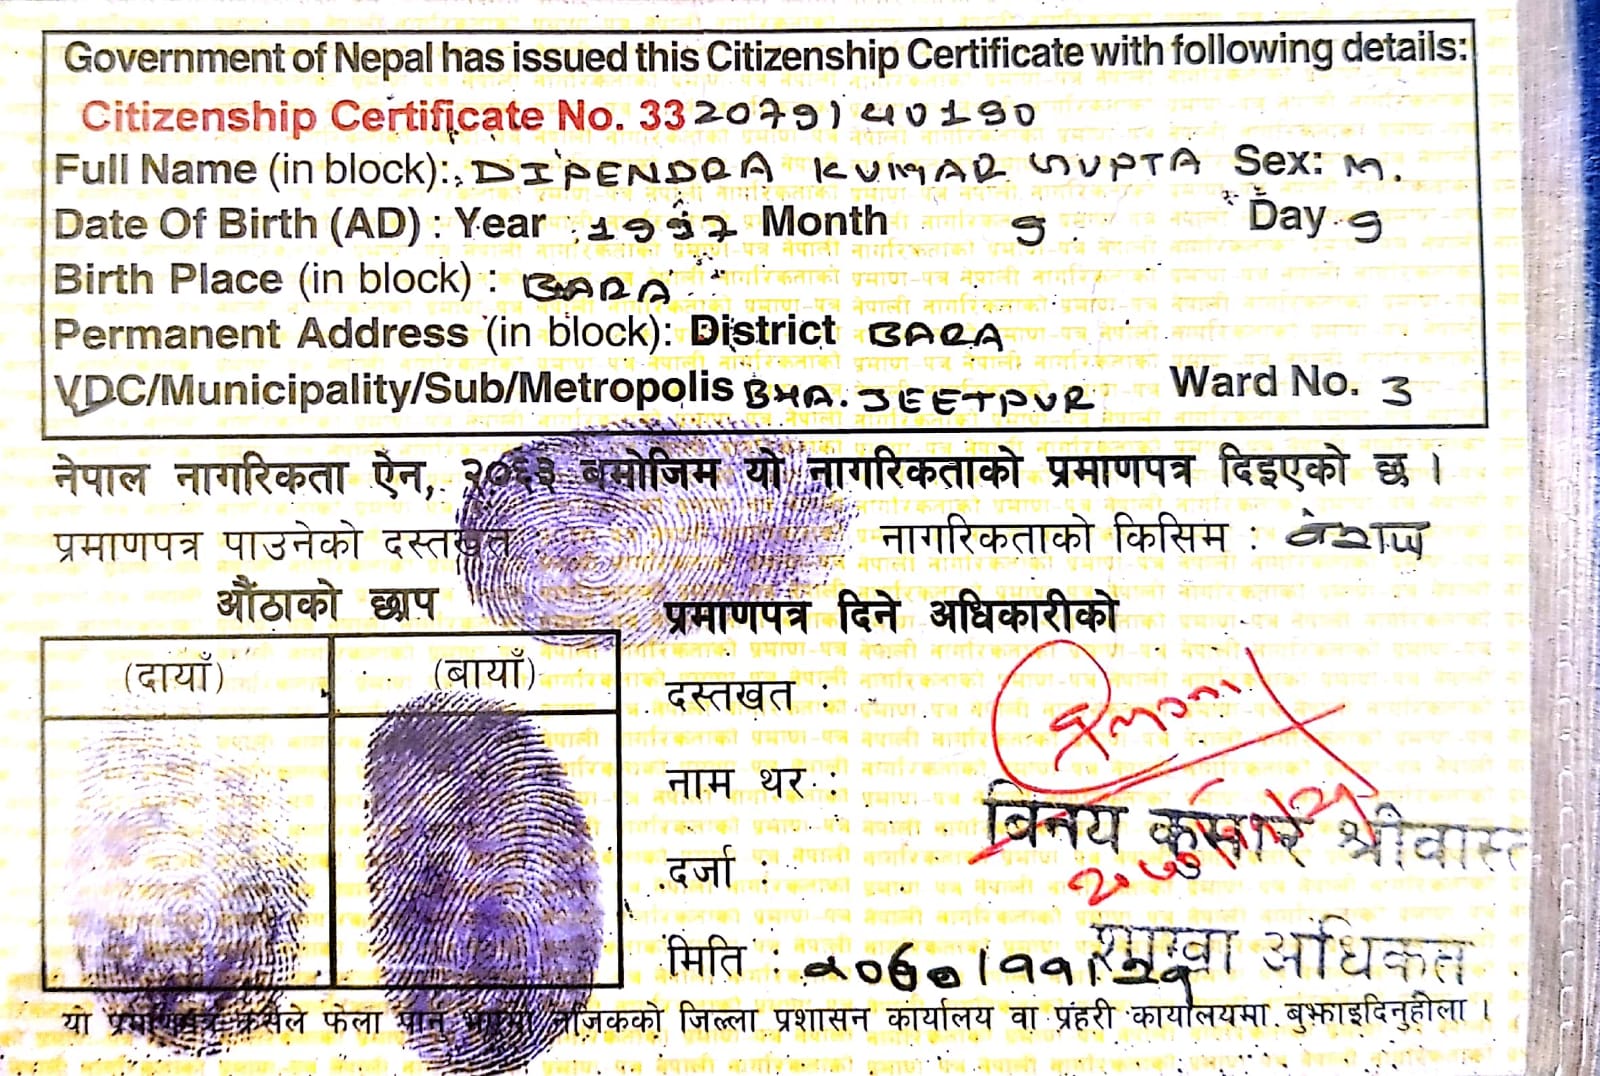 Government of Nepal has issued this Citizenship Certificate with following details:
Citizenship Certificate No. 33 2079140190
Full Name (in block): DIPENDRA KUMAR GUPTA Sex: M.
Date Of Birth (AD) : Year 1997 Month 9 Day 9
Birth Place (in block) : BARA
Permanent Address (in block): District BARA
VDC/Municipality/Sub/Metropolis BHA. JEETPUR Ward No. 3
नेपाल नागरिकता ऐन, २०६३ बमोजिम यो नागरिकताको प्रमाणपत्र दिइएको छ ।
प्रमाणपत्र पाउनेको दस्तखत नागरिकताको किसिम : वंशज
औंठाको छाप
प्रमाणपत्र दिने अधिकारीको
(दायाँ) (बायाँ)
दस्तखत :
नाम थर : विनय कुमार श्रीवास्त
दर्जा :
शाखा अधिकृत
मिति :
यो प्रमाणपत्र कसैले फेला पार्नु भएमा नजिकको जिल्ला प्रशासन कार्यालय वा प्रहरी कार्यालयमा बुझाइदिनुहोला ।